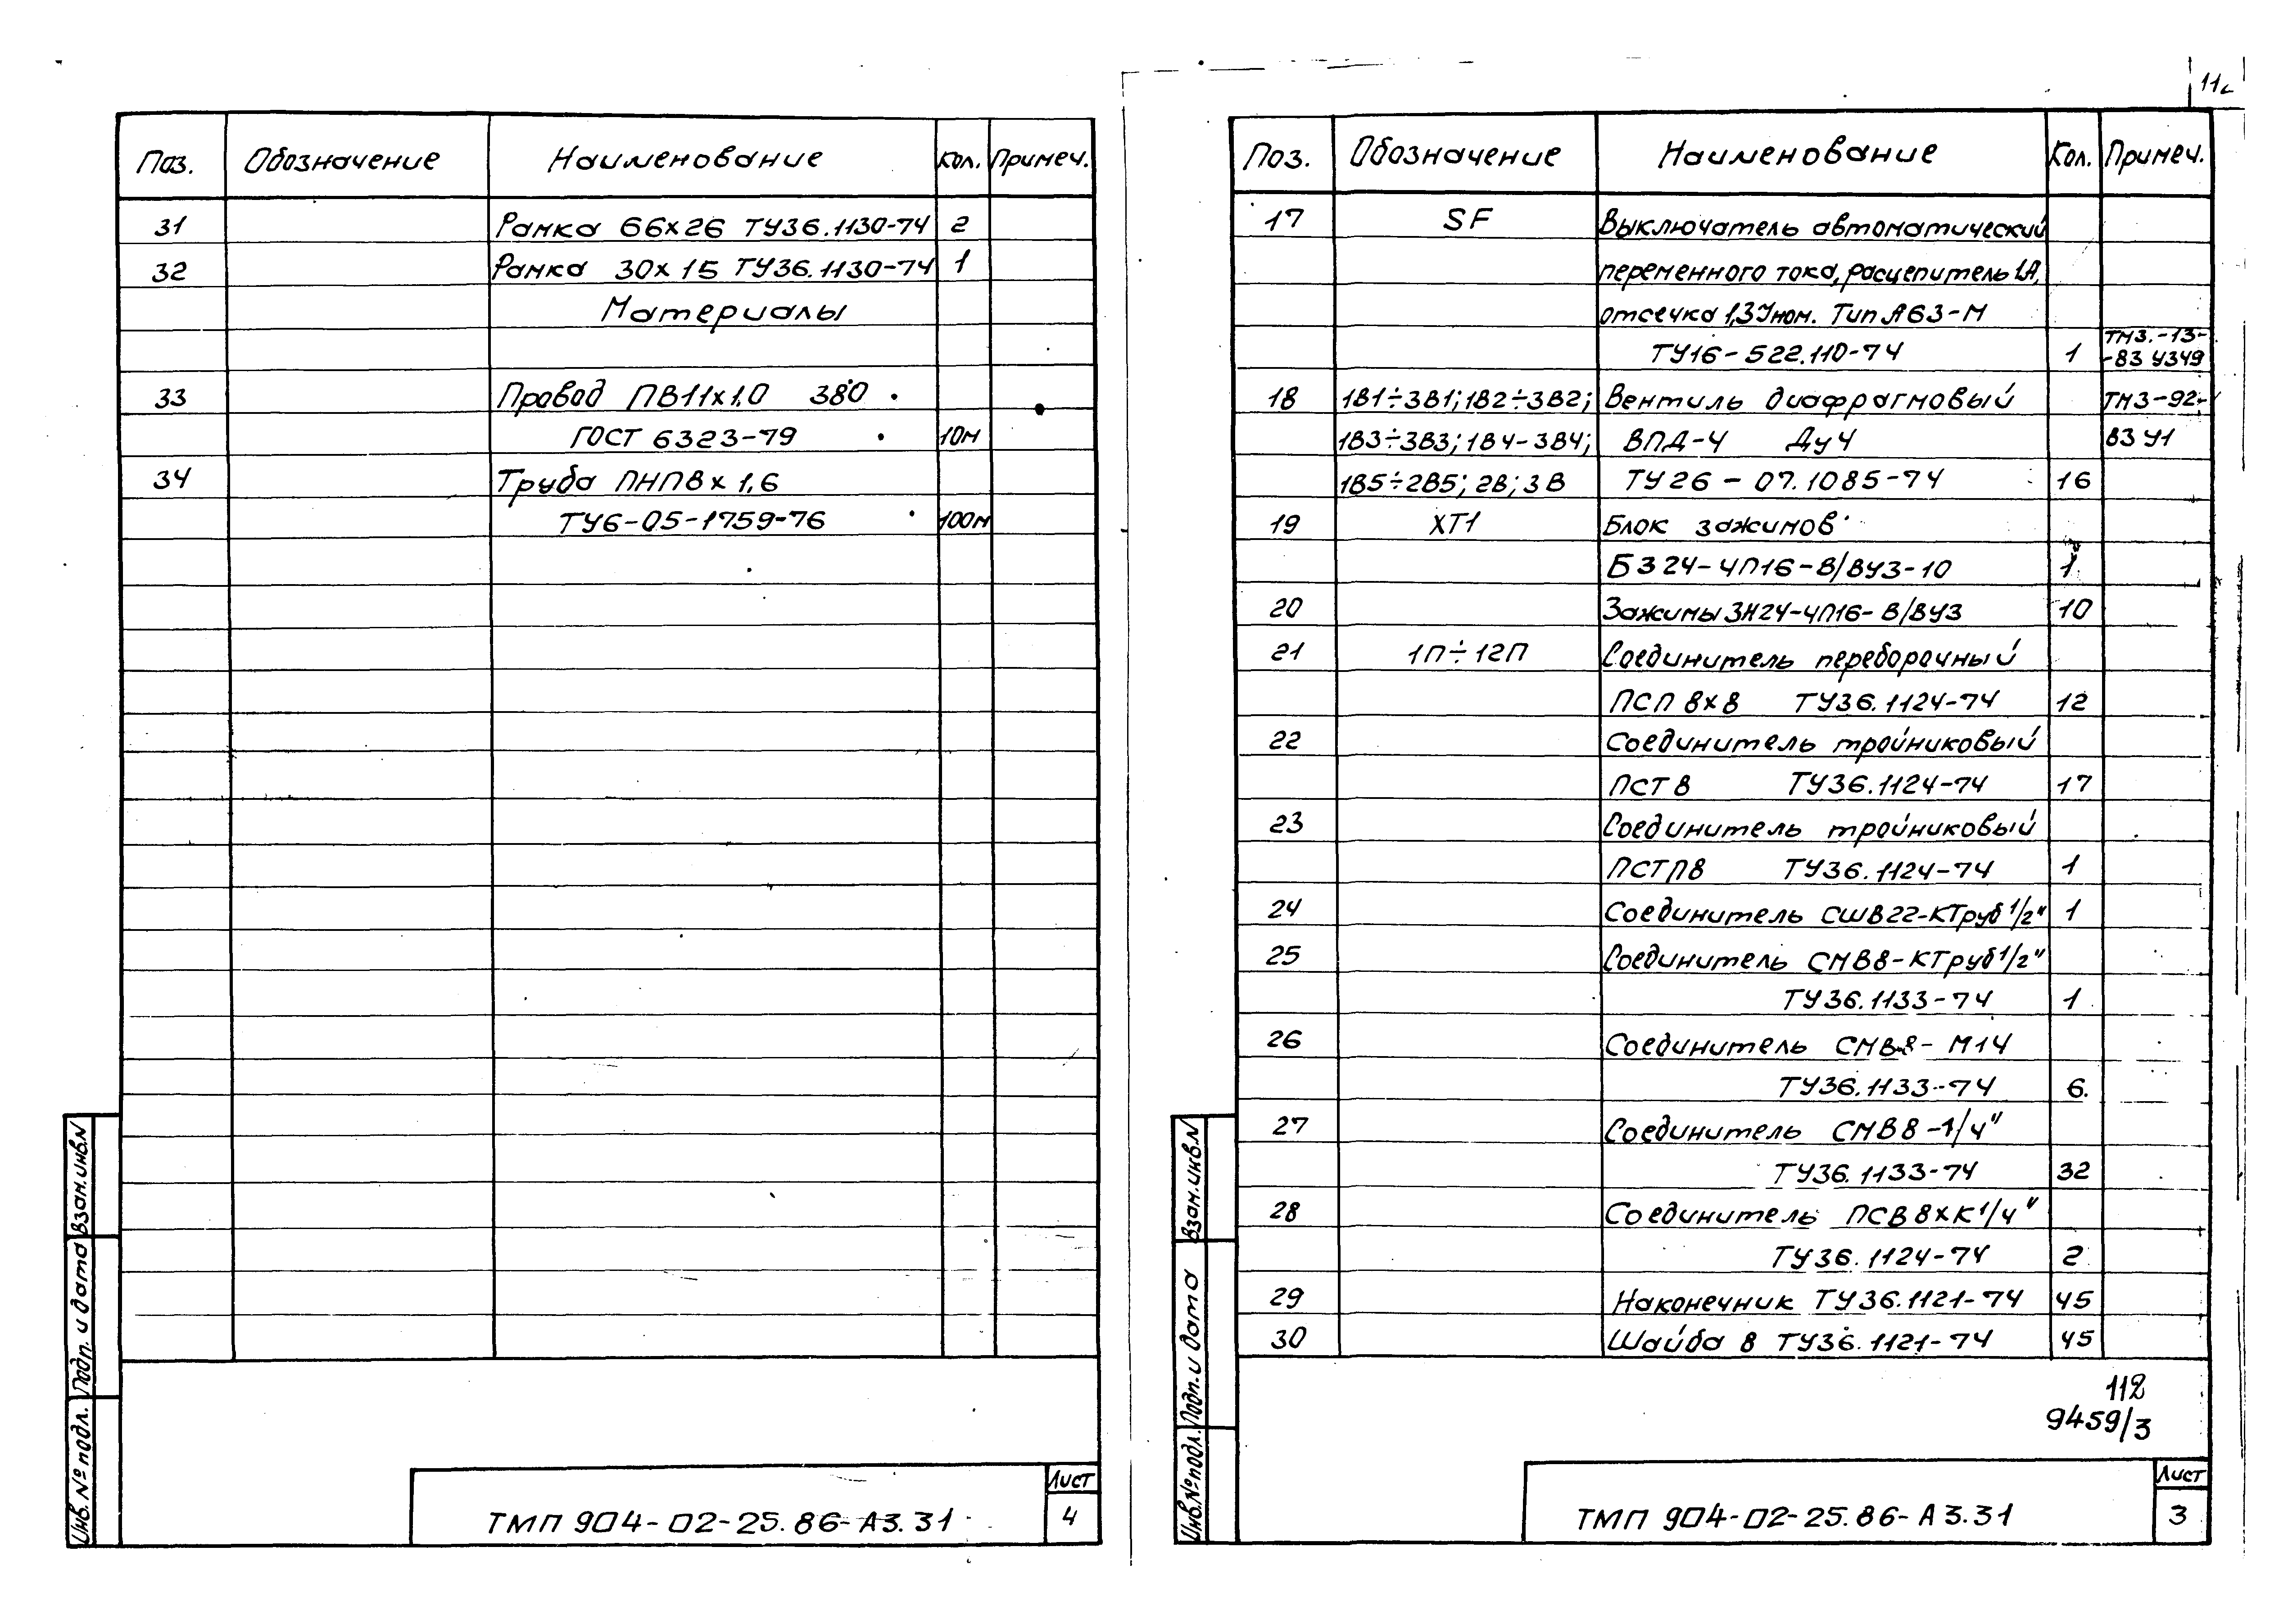 Поз. Обозначение Наименование Кол. Примеч.
31 Рамка 66х26 ТУ36.1130-74 2
32 Рамка 30х15 ТУ36.1130-74 1
Материалы
33 Провод ПВ1 1х1,0 380
ГОСТ 6323-79 10м
34 Труба ПНП 8х1,6
ТУ6-05-1759-76 100м
Взам.инв.N
Подп. и дата
Инв. № подл.
ТМП 904-02-25.86-А3.31
Лист
4
Поз. Обозначение Наименование Кол. Примеч.
17 SF Выключатель автоматический
переменного тока, расцепитель 1А,
отсечка 1,3Iном. Тип А63-М
ТУ16-522.110-74 1 ТМ3.-13-
-83 У349
18 1В1÷3В1; 1В2÷3В2; Вентиль диафрагмовый ТМ3-92-
1В3÷3В3; 1В4-3В4; ВПД-4 Ду4 83 У1
1В5÷2В5; 2В; 3В ТУ26-07.1085-74 16
19 ХТ1 Блок зажимов
БЗ24-4П16-В/ВУ3-10 1
20 Зажимы ЗН24-4П16-В/ВУ3 10
21 1П÷12П Соединитель переборочный
ПСП 8х8 ТУ36.1124-74 12
22 Соединитель тройниковый
ПСТ 8 ТУ36.1124-74 17
23 Соединитель тройниковый
ПСТП8 ТУ36.1124-74 1
24 Соединитель СШВ22-КТруб 1/2" 1
25 Соединитель СМВ8-КТруб 1/2"
ТУ36.1133-74 1
26 Соединитель СМВ8-М14
ТУ36.1133-74 6.
27 Соединитель СМВ8-1/4"
ТУ36.1133-74 32
28 Соединитель ПСВ 8хК1/4"
ТУ36.1124-74 2
29 Наконечник ТУ36.1121-74 45
30 Шайба 8 ТУ36.1121-74 45
112
9459/3
Взам.инв.N
Подп. и дата
Инв.№ подл.
ТМП 904-02-25.86-А3.31
Лист
3